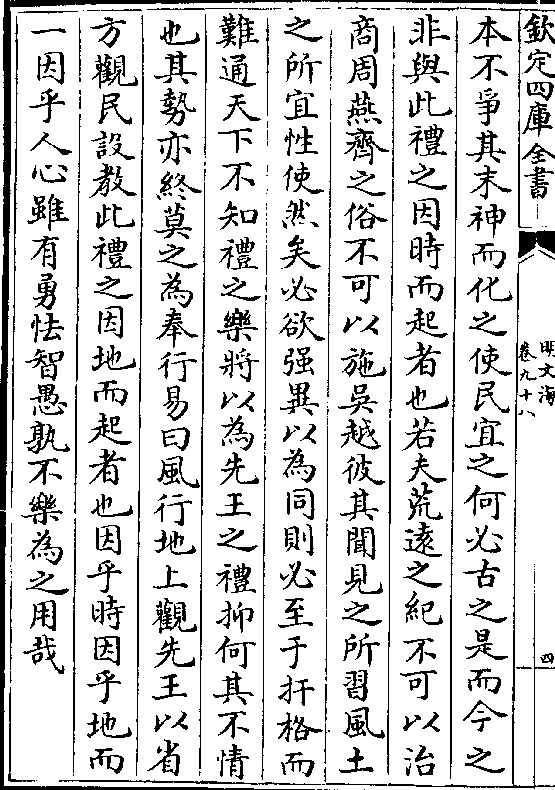 欽定四庫全書
明文海
卷九十八
四
本不爭其末神而化之使民宜之何必古之是而今之
非與此禮之因時而起者也若夫荒遠之紀不可以治
商周燕齊之俗不可以施吳越彼其聞見之所習風土
之所宜性使然矣必欲强異以為同則必至于扞格而
難通天下不知禮之樂將以為先王之禮抑何其不情
也其勢亦終莫之為奉行易曰風行地上觀先王以省
方觀民設教此禮之因地而起者也因乎時因乎地而
一因乎人心雖有勇怯智愚孰不樂為之用哉